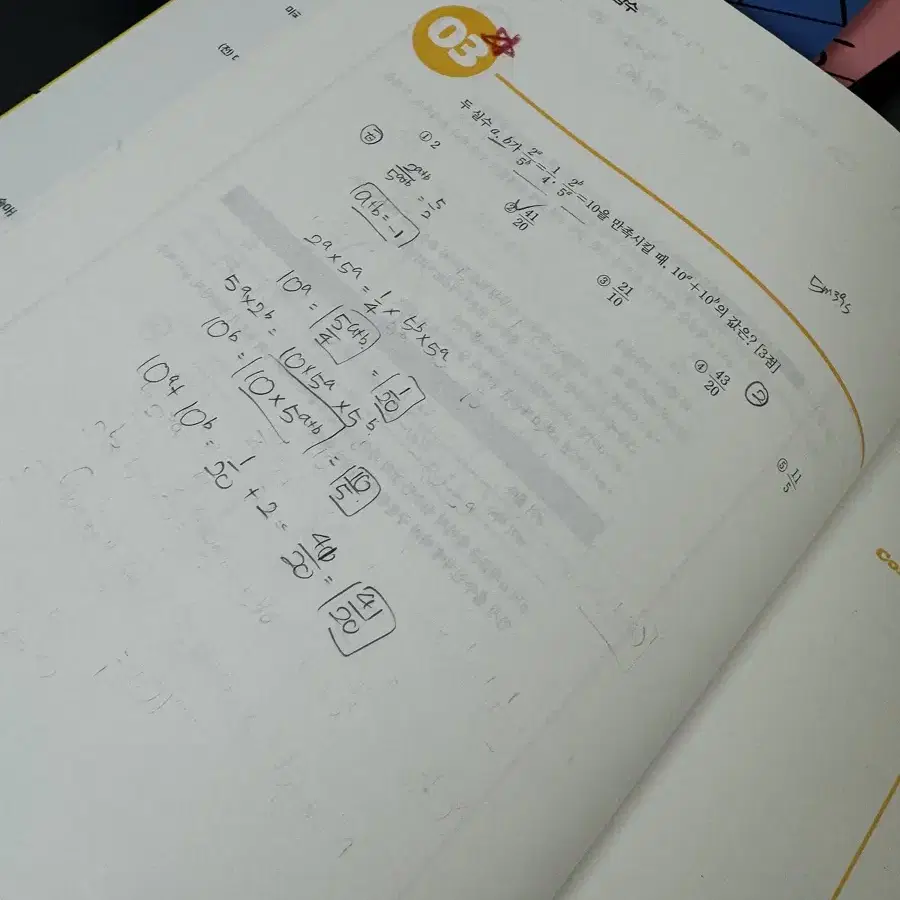 03
두 실수 a, b가 2^a/5^b = 1/4, 2^b/5^a = 10을 만족시킬 때, 10^a + 10^b의 값은? [3점]
① 2 ② 41/20 ③ 21/10 ④ 43/20 ⑤ 11/5
②
5m39s
2^(a+b)/5^(a+b) = 5/2
a+b = -1
2^a × 5^a = 1/4 × 5^b × 5^a
10^a = 5^(a+b)/4 = 1/20
5^a × 2^b = 10 × 5^a × 5^b
10^b = 10 × 5^(a+b) = 10/5
10^a + 10^b = 1/20 + 2 = 41/20 = 41/20